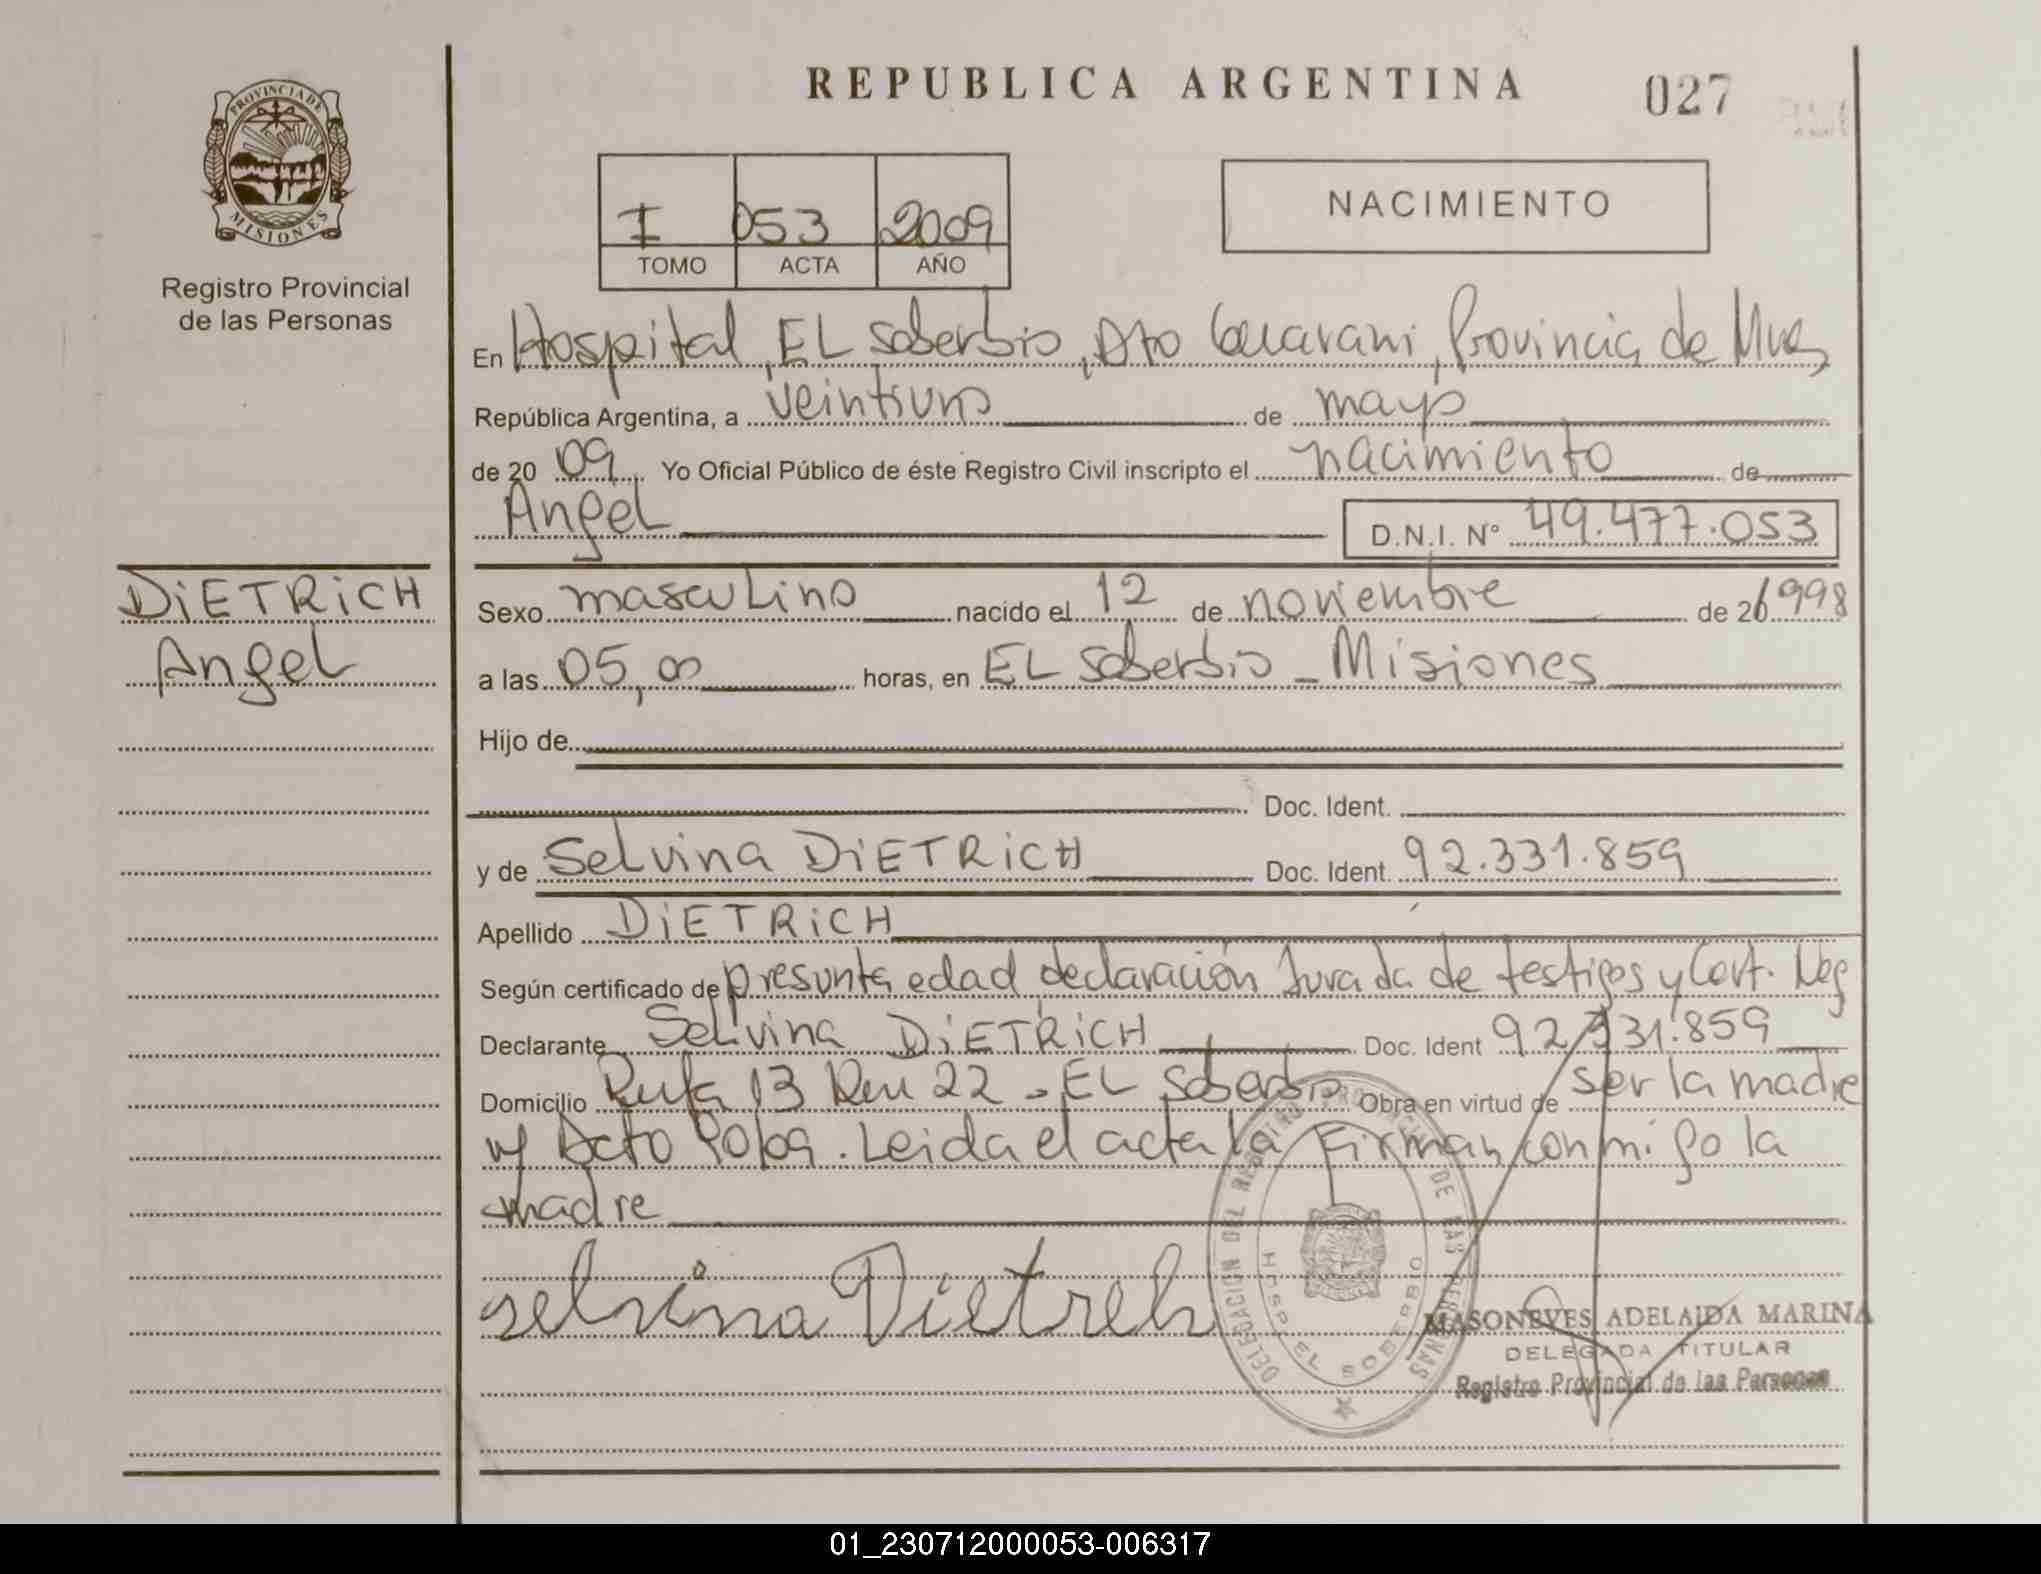 REPUBLICA ARGENTINA
027
PROVINCIA DE
MISIONES
Registro Provincial
de las Personas
I 053 2009
TOMO ACTA AÑO
NACIMIENTO
En Hospital, EL Soberbio, Dto Guarani, Provincia de Mnes
República Argentina, a veintiuno de mayo
de 20 09 Yo Oficial Público de éste Registro Civil inscripto el nacimiento de
Angel
D.N.I. N° 49.477.053
DiETRiCH
Angel
Sexo masculino nacido el 12 de noviembre de 1998
a las 05,00 horas, en EL Soberbio - Misiones
Hijo de
Doc. Ident.
y de Selvina DiETRiCH Doc. Ident. 92.331.859
Apellido DiETRiCH
Según certificado de presunta edad declaración Jurada de testigos y Cert. Neg
Declarante Selvina DiETRiCH Doc. Ident 92.331.859
Domicilio Ruta 13 Km 22 - EL Soberbio Obra en virtud de ser la madre
Leida el acta la Firman conmigo la
madre
selvina Dietrch
DELEGACION DEL REGISTRO PROVINCIAL DE LAS PERSONAS
HOSP. EL SOBERBIO
MASONEVES ADELAIDA MARINA
DELEGADA TITULAR
Registro Provincial de las Personas
01_230712000053-006317